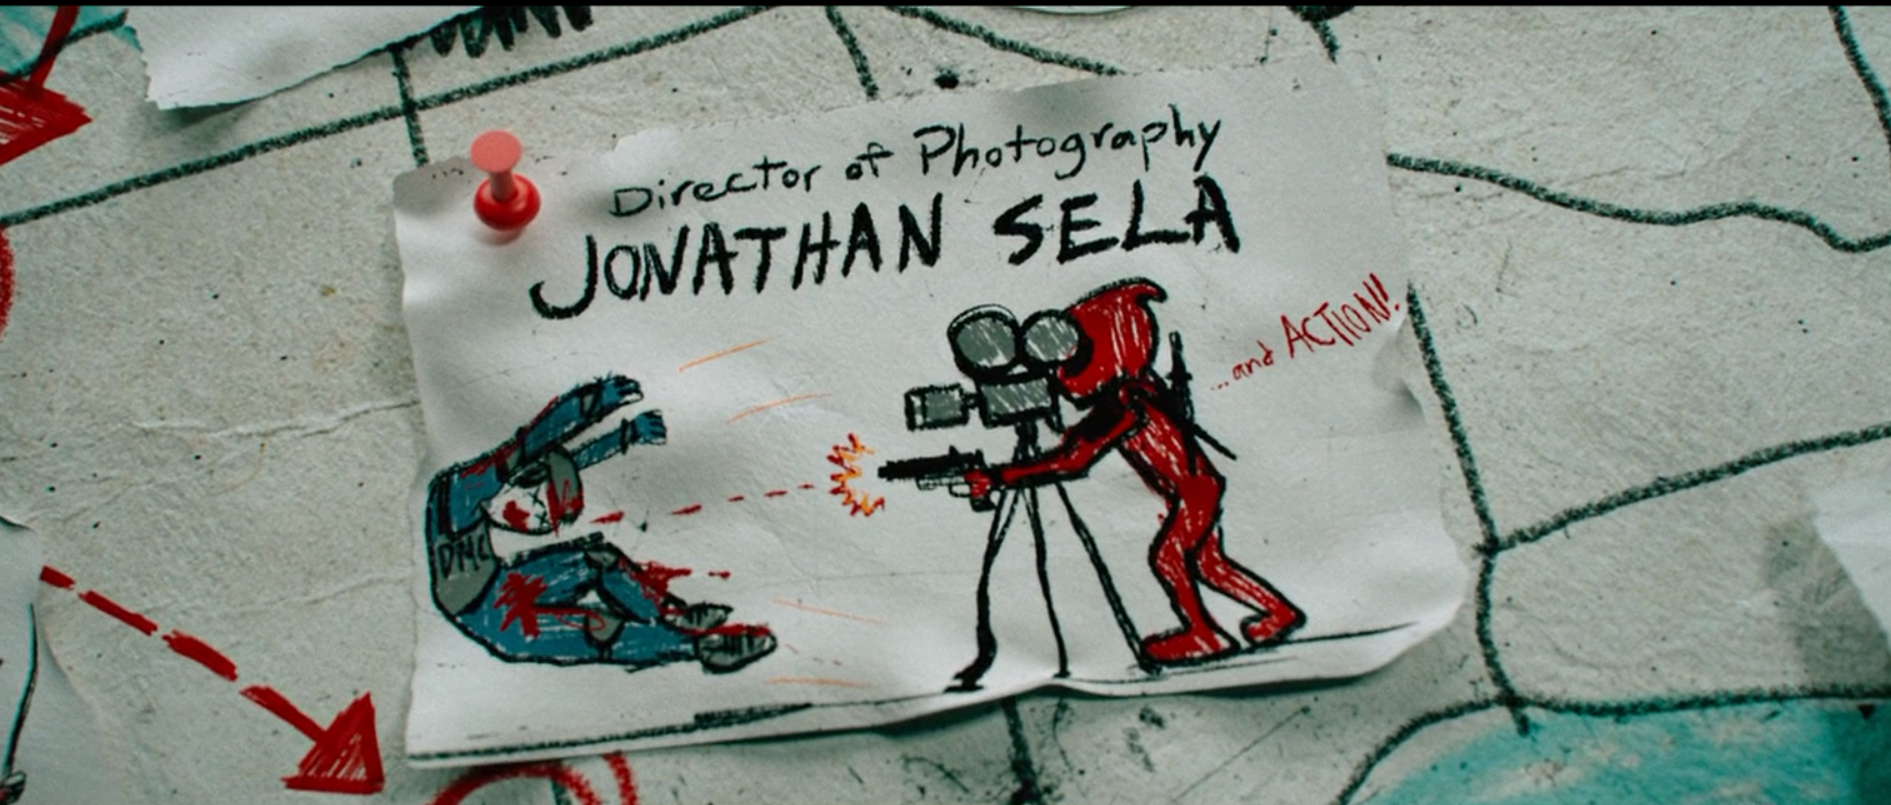 Director of Photography
JONATHAN SELA
...and ACTION!
DMC